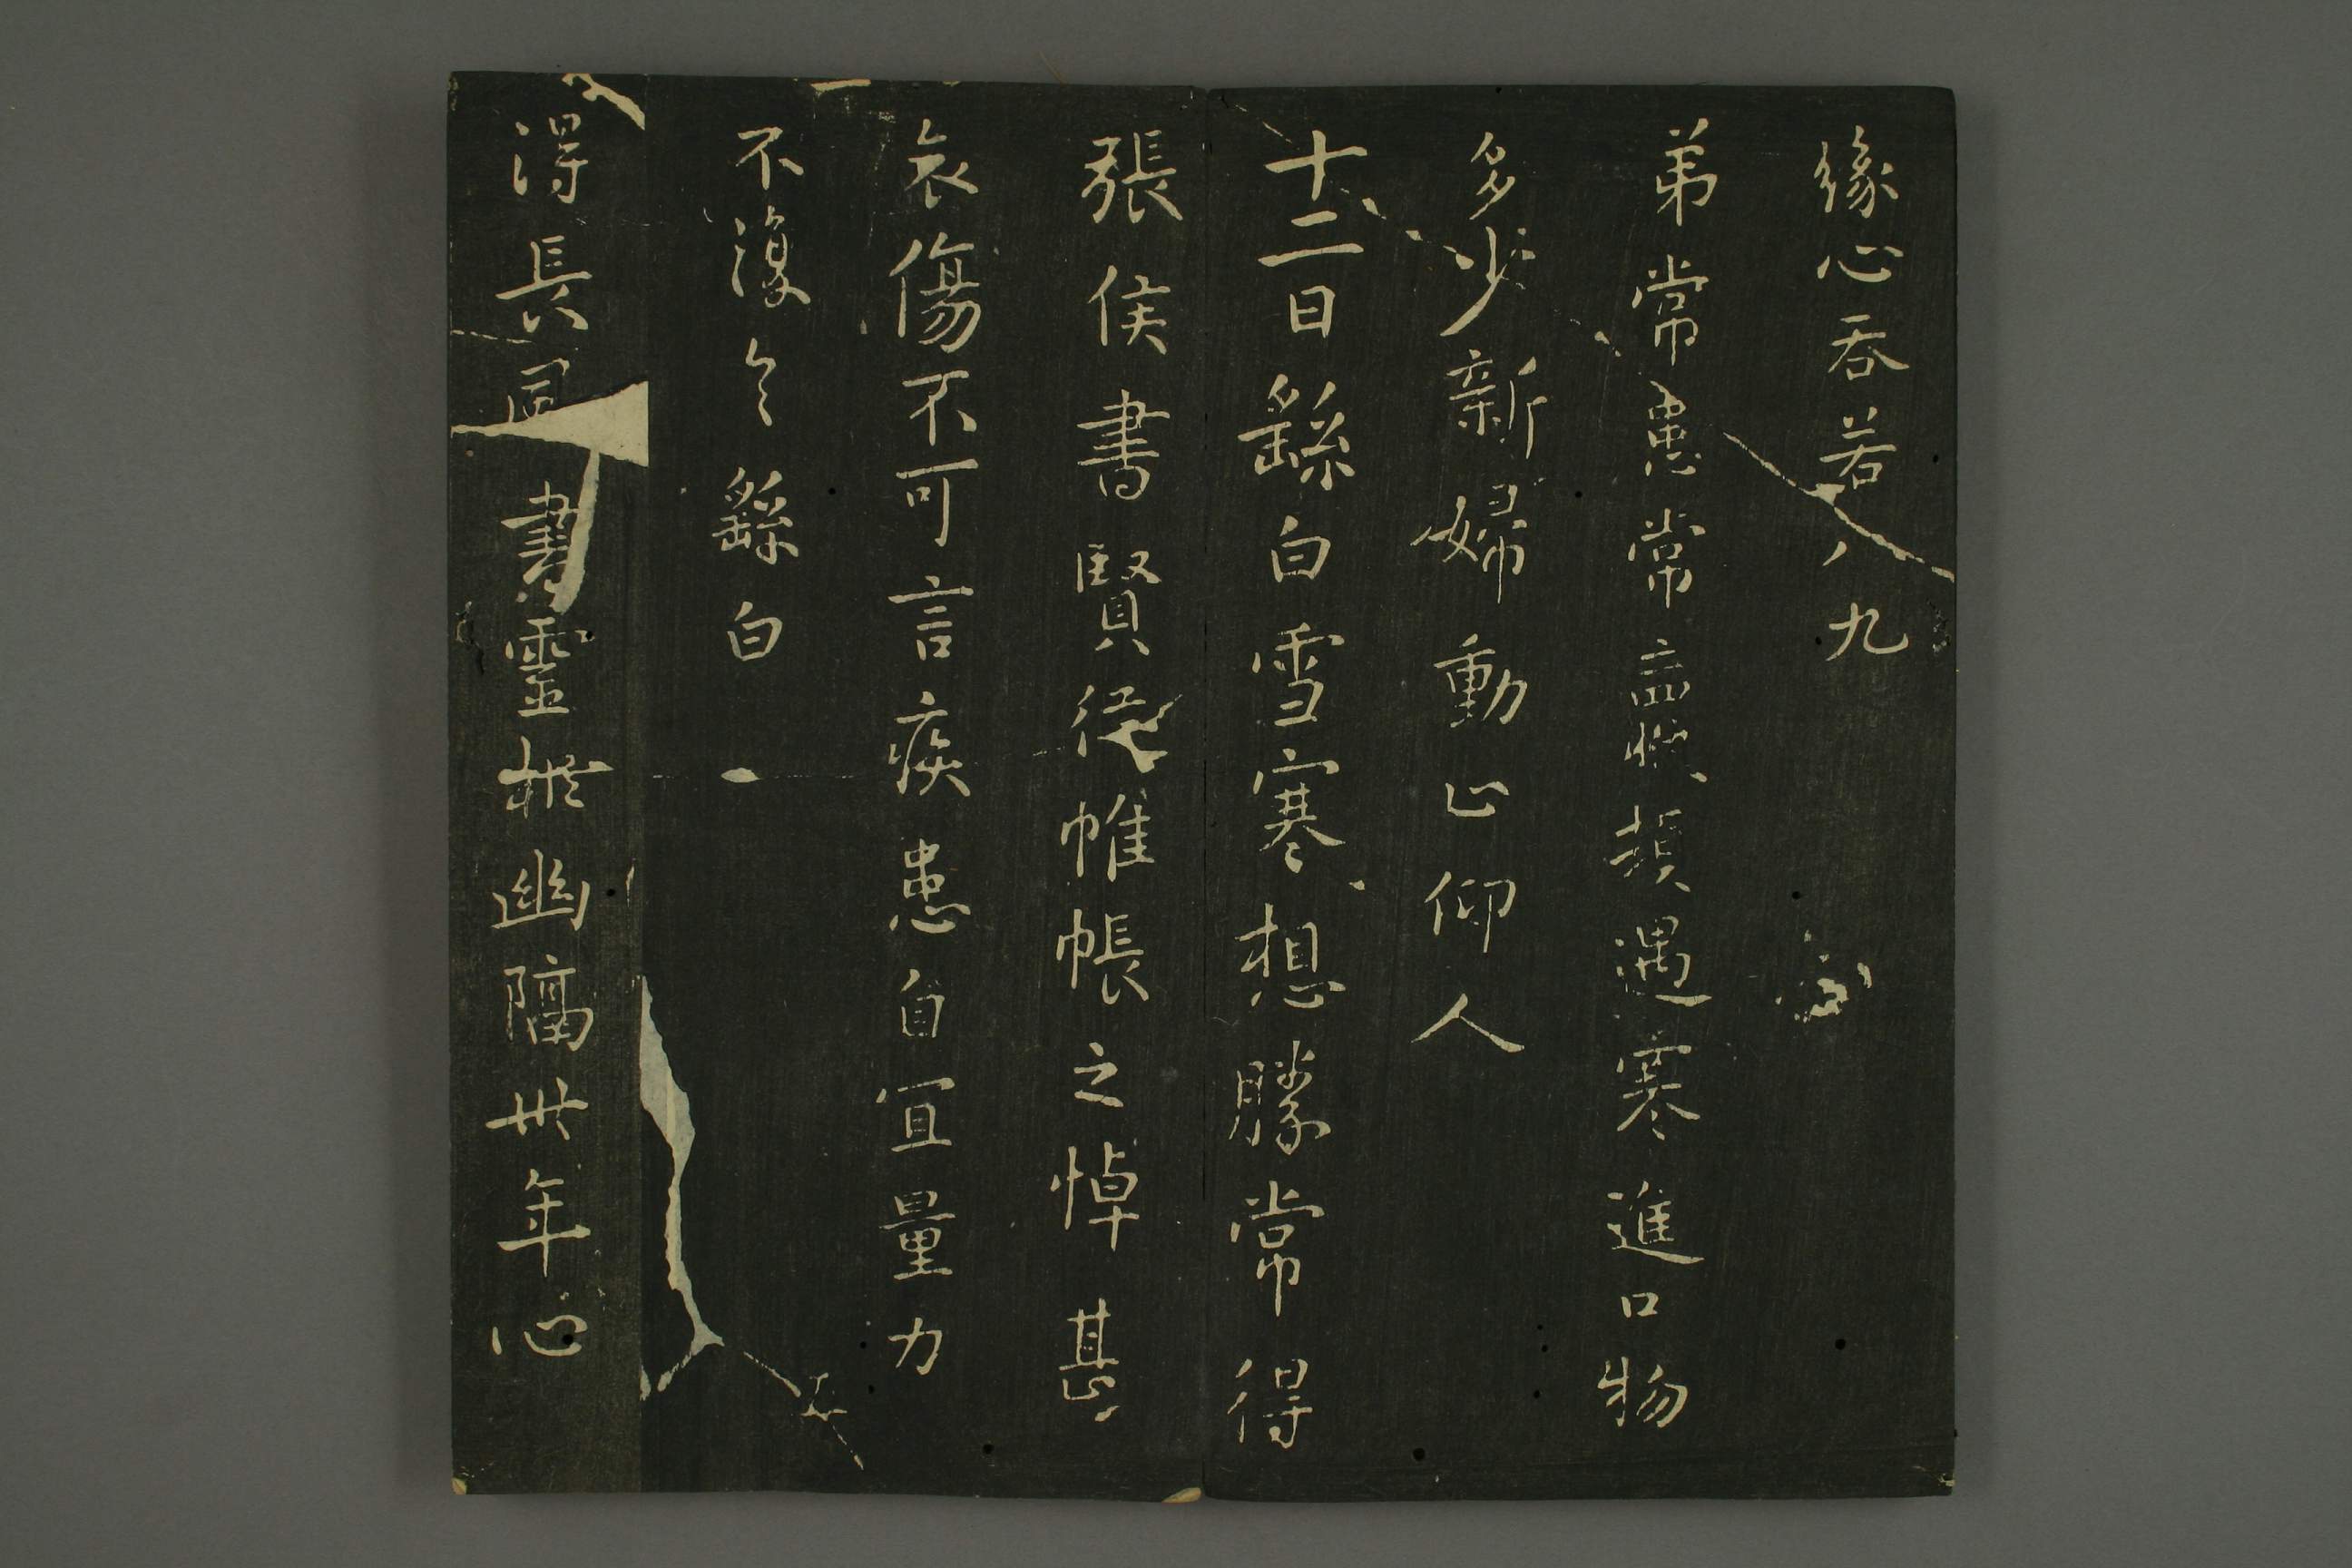 緣心吞若八九
弟常患常羸頓遇寒進口物
多少新婦動止仰人
十二日繇白雪寒想勝常得
張侯書賢從帷帳之悼甚
哀傷不可言疾患自宜量力
不復具繇白
得長風書靈柩幽隔卅年心